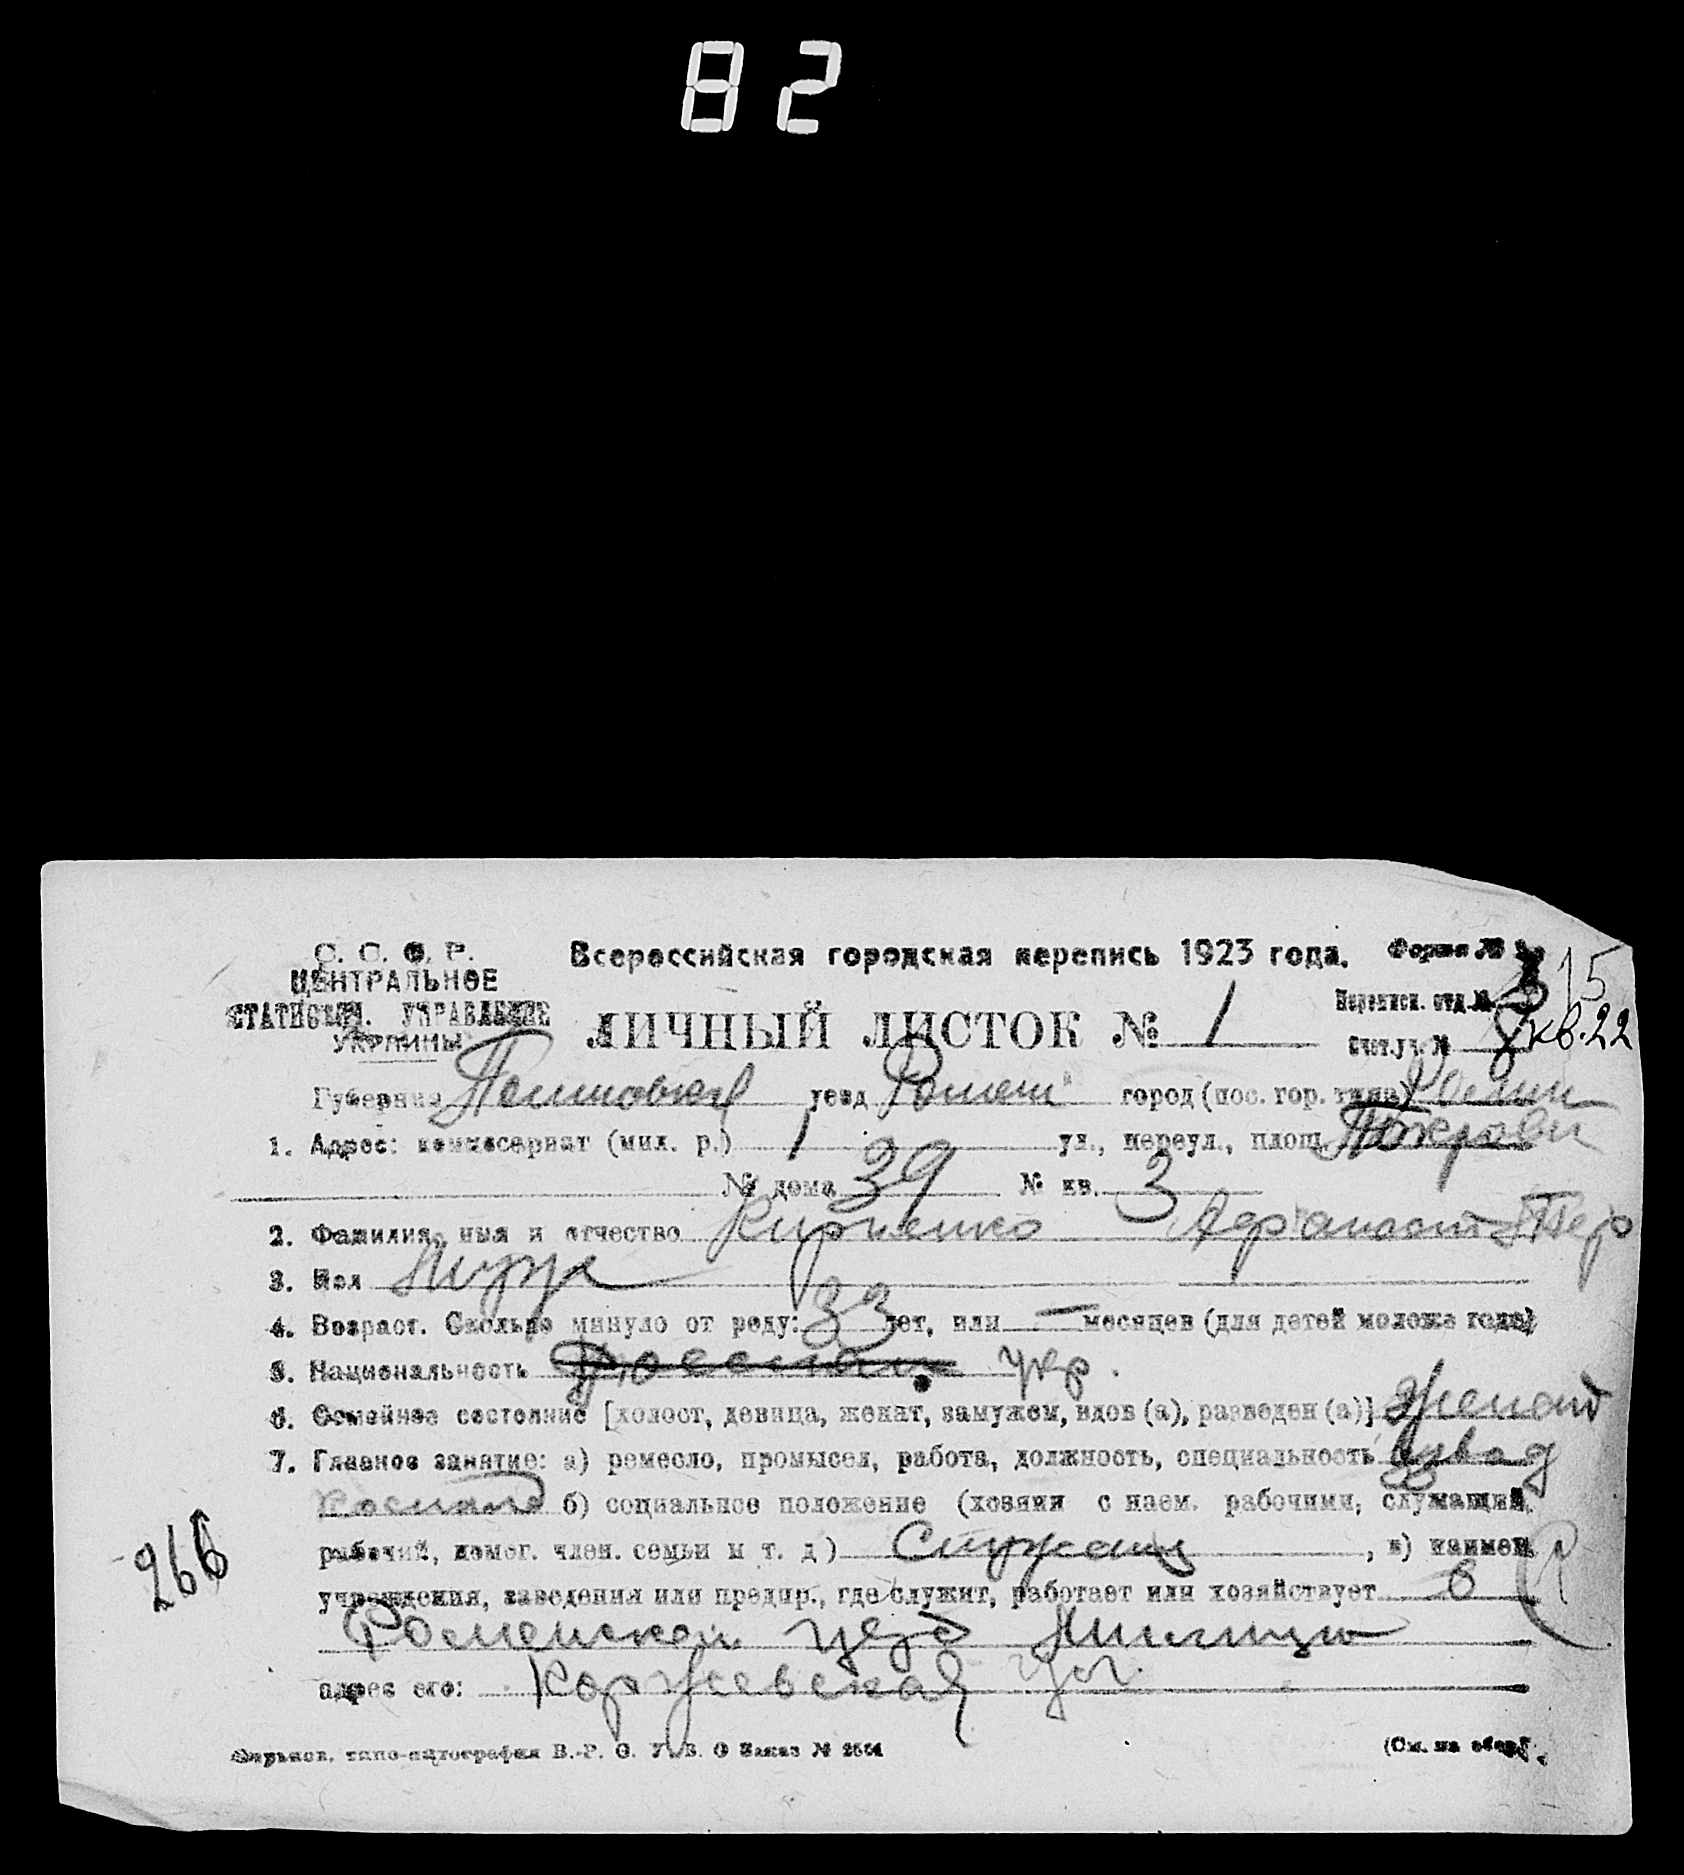 82
С. С. С. Р.
ЦЕНТРАЛЬНОЕ
СТАТИСТИЧ. УПРАВЛЕНИЕ
УКРАИНЫ
Всероссийская городская перепись 1923 года.
Форма №
ЛИЧНЫЙ ЛИСТОК № 1
Переписн. отд. № 3 15
Счет. уч. № 8 кв. 22
Губерния Полтовская уезд Ромен город (пос. гор. типа) Ромни
1. Адрес: комиссариат (мил. р.) 1 ул., переул., площ. Покровс
№ дома 39 № кв. 3
2. Фамилия, имя и отчество Кириенко
3. Пол Муж
4. Возраст. Сколько минуло от роду: 33 лет, или — месяцев (для детей моложе года)
5. Национальность укр.
6. Семейное состояние [холост, девица, женат, замужем, вдов (а), разведен (а)] женат
7. Главное занятие: а) ремесло, промысел, работа, должность, специальность
б) социальное положение (хозяин с наем. рабочими, служащий,
рабочий, помог. член. семьи и т. д) Служащ , в) наимен.
учреждения, заведения или предпр., где служит, работает или хозяйствует в
Роменской уезд Милиции
адрес его: Коржевская ул.
266
Харьков, типо-литография В.-Р. С. У. В. О Заказ № 2554
(См. на обор.)